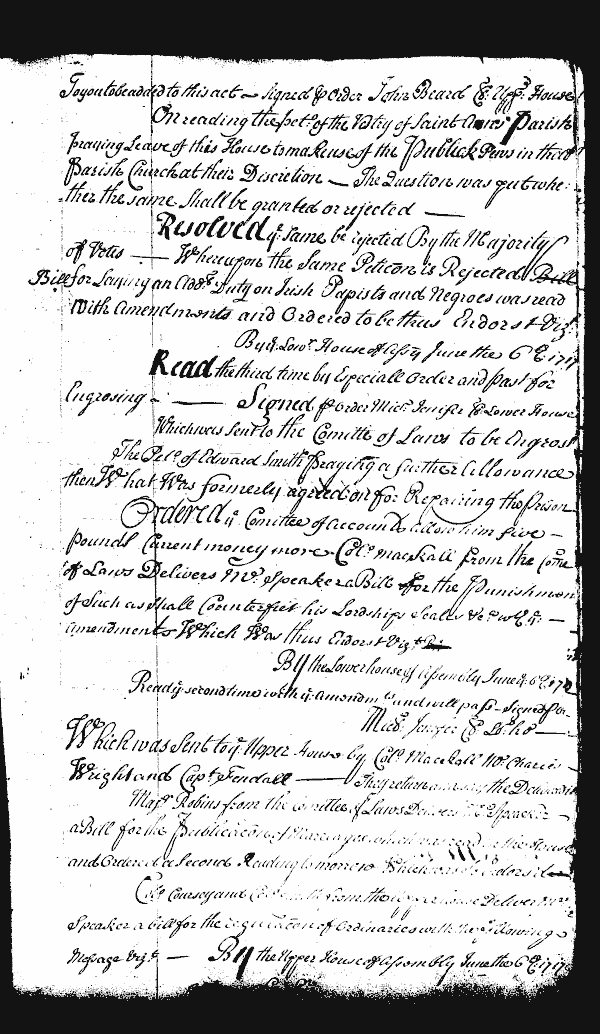 To you to be added to this act — Signed p Order John Beard Cl. Upp. House
On reading the pet.n of the Vestry of Saint Anns Parish
praying Leave of this House to make use of the Publick Pews in that
Parish Church at their Discretion — The Question was put whe:
ther the same Shall be granted or rejected —
Resolved ye Same be rejected By the Majority
of Votes — Whereupon the Same Peticon is Rejected Bill
Bill for Laying an Add.l Duty on Irish Papists and Negroes was read
With Amendments and Ordered to be thus Endorst Viz.t
By ye Low.r House of Ass.y June the 6th 1717
Read the third time by Especiall Order and past for
Engrosing — Signed p Order Mich. Jenifer Cl Lower House
Which was Sent to the Comitte of Laws to be Engrost
The Pet.n of Edward Smith Praying a further Allowance
then What Was formerly agreed on for Repairing the Prison
Ordered ye Comittee of accounts allow him five —
pounds Current money more — Coll. Mackall from the Comtee
of Laws Delivers Mr. Speaker a Bill for the Punishment
of Such as shall Counterfeit his Lordships Seales &c. with ye —
amendments Which Was thus Endorst Viz.t
By the Lower house of Assembly June ye 6th 1717
Read ye second time with ye amendm.ts and will pass — Signed p Or
Mich. Jenifer Cl Lo. ho —
Which was Sent to ye Upper House by Coll. Mackall Mr. Charles
Wright and Capt. Fendall — They return and say they Delivered it
Maj.r Robins from the Comittee of Laws Delivers Mr. Speaker
a Bill for the Publicacon of Marriages which was read in the House
and Ordered a Second Reading to morrow Which was so Endorst —
Coll. Coursey and from the Upper house Deliver Mr.
Speaker a bill for the regulacon of Ordinaries with the following
Message Viz.t — By the Upper House of Assembly June the 6th 1717